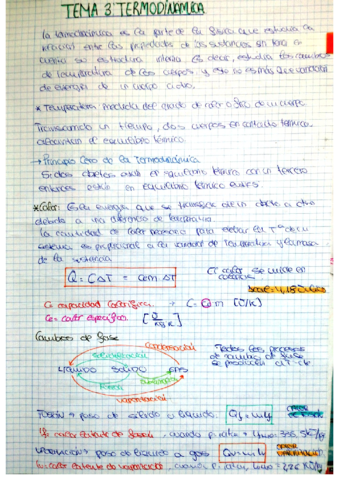 TEMA 3: TERMODINÁMICA
La termodinámica es la parte de la física que estudia la
relación entre las propiedades de las sustancias sin tener en
cuenta su estructura interna. Es decir, estudia los cambios
de temperatura de los cuerpos y esto no es más que variación
de energía de un cuerpo a otro.
* Temperatura: medida del grado de calor o frío de un cuerpo.
Transcurrido un tiempo, dos cuerpos en contacto térmico
alcanzan el equilibrio térmico.
→ Principio Cero de la Termodinámica
Si dos objetos están en equilibrio térmico con un tercero
entonces están en equilibrio térmico entre sí.
* Calor: Es la energía que se transfiere de un objeto a otro
debido a una diferencia de temperatura
La cantidad de calor necesario para elevar la Tª de un
sistema es proporcional a la variación de temperatura y la masa
de la sustancia
Q = C∆T = cem∆T
El calor se mide en
calorías
1 cal = 4,18 Julios
C = capacidad calorífica → C = Q m [J/K]
Ce = calor específico [J/kg K]
Cambios de fase
condensación
sublimación
líquido sólido gas
fusión
vaporización
Todos los procesos
de cambio de fase
se producen a T cte
FUSIÓN → paso de sólido a líquido Qf = mLf
Lf: calor latente de fusión, cuando P = 1 atm
VAPORIZACIÓN → paso de líquido a gas Qv = mLv
Lv: calor latente de vaporización, cuando P = 1 atm